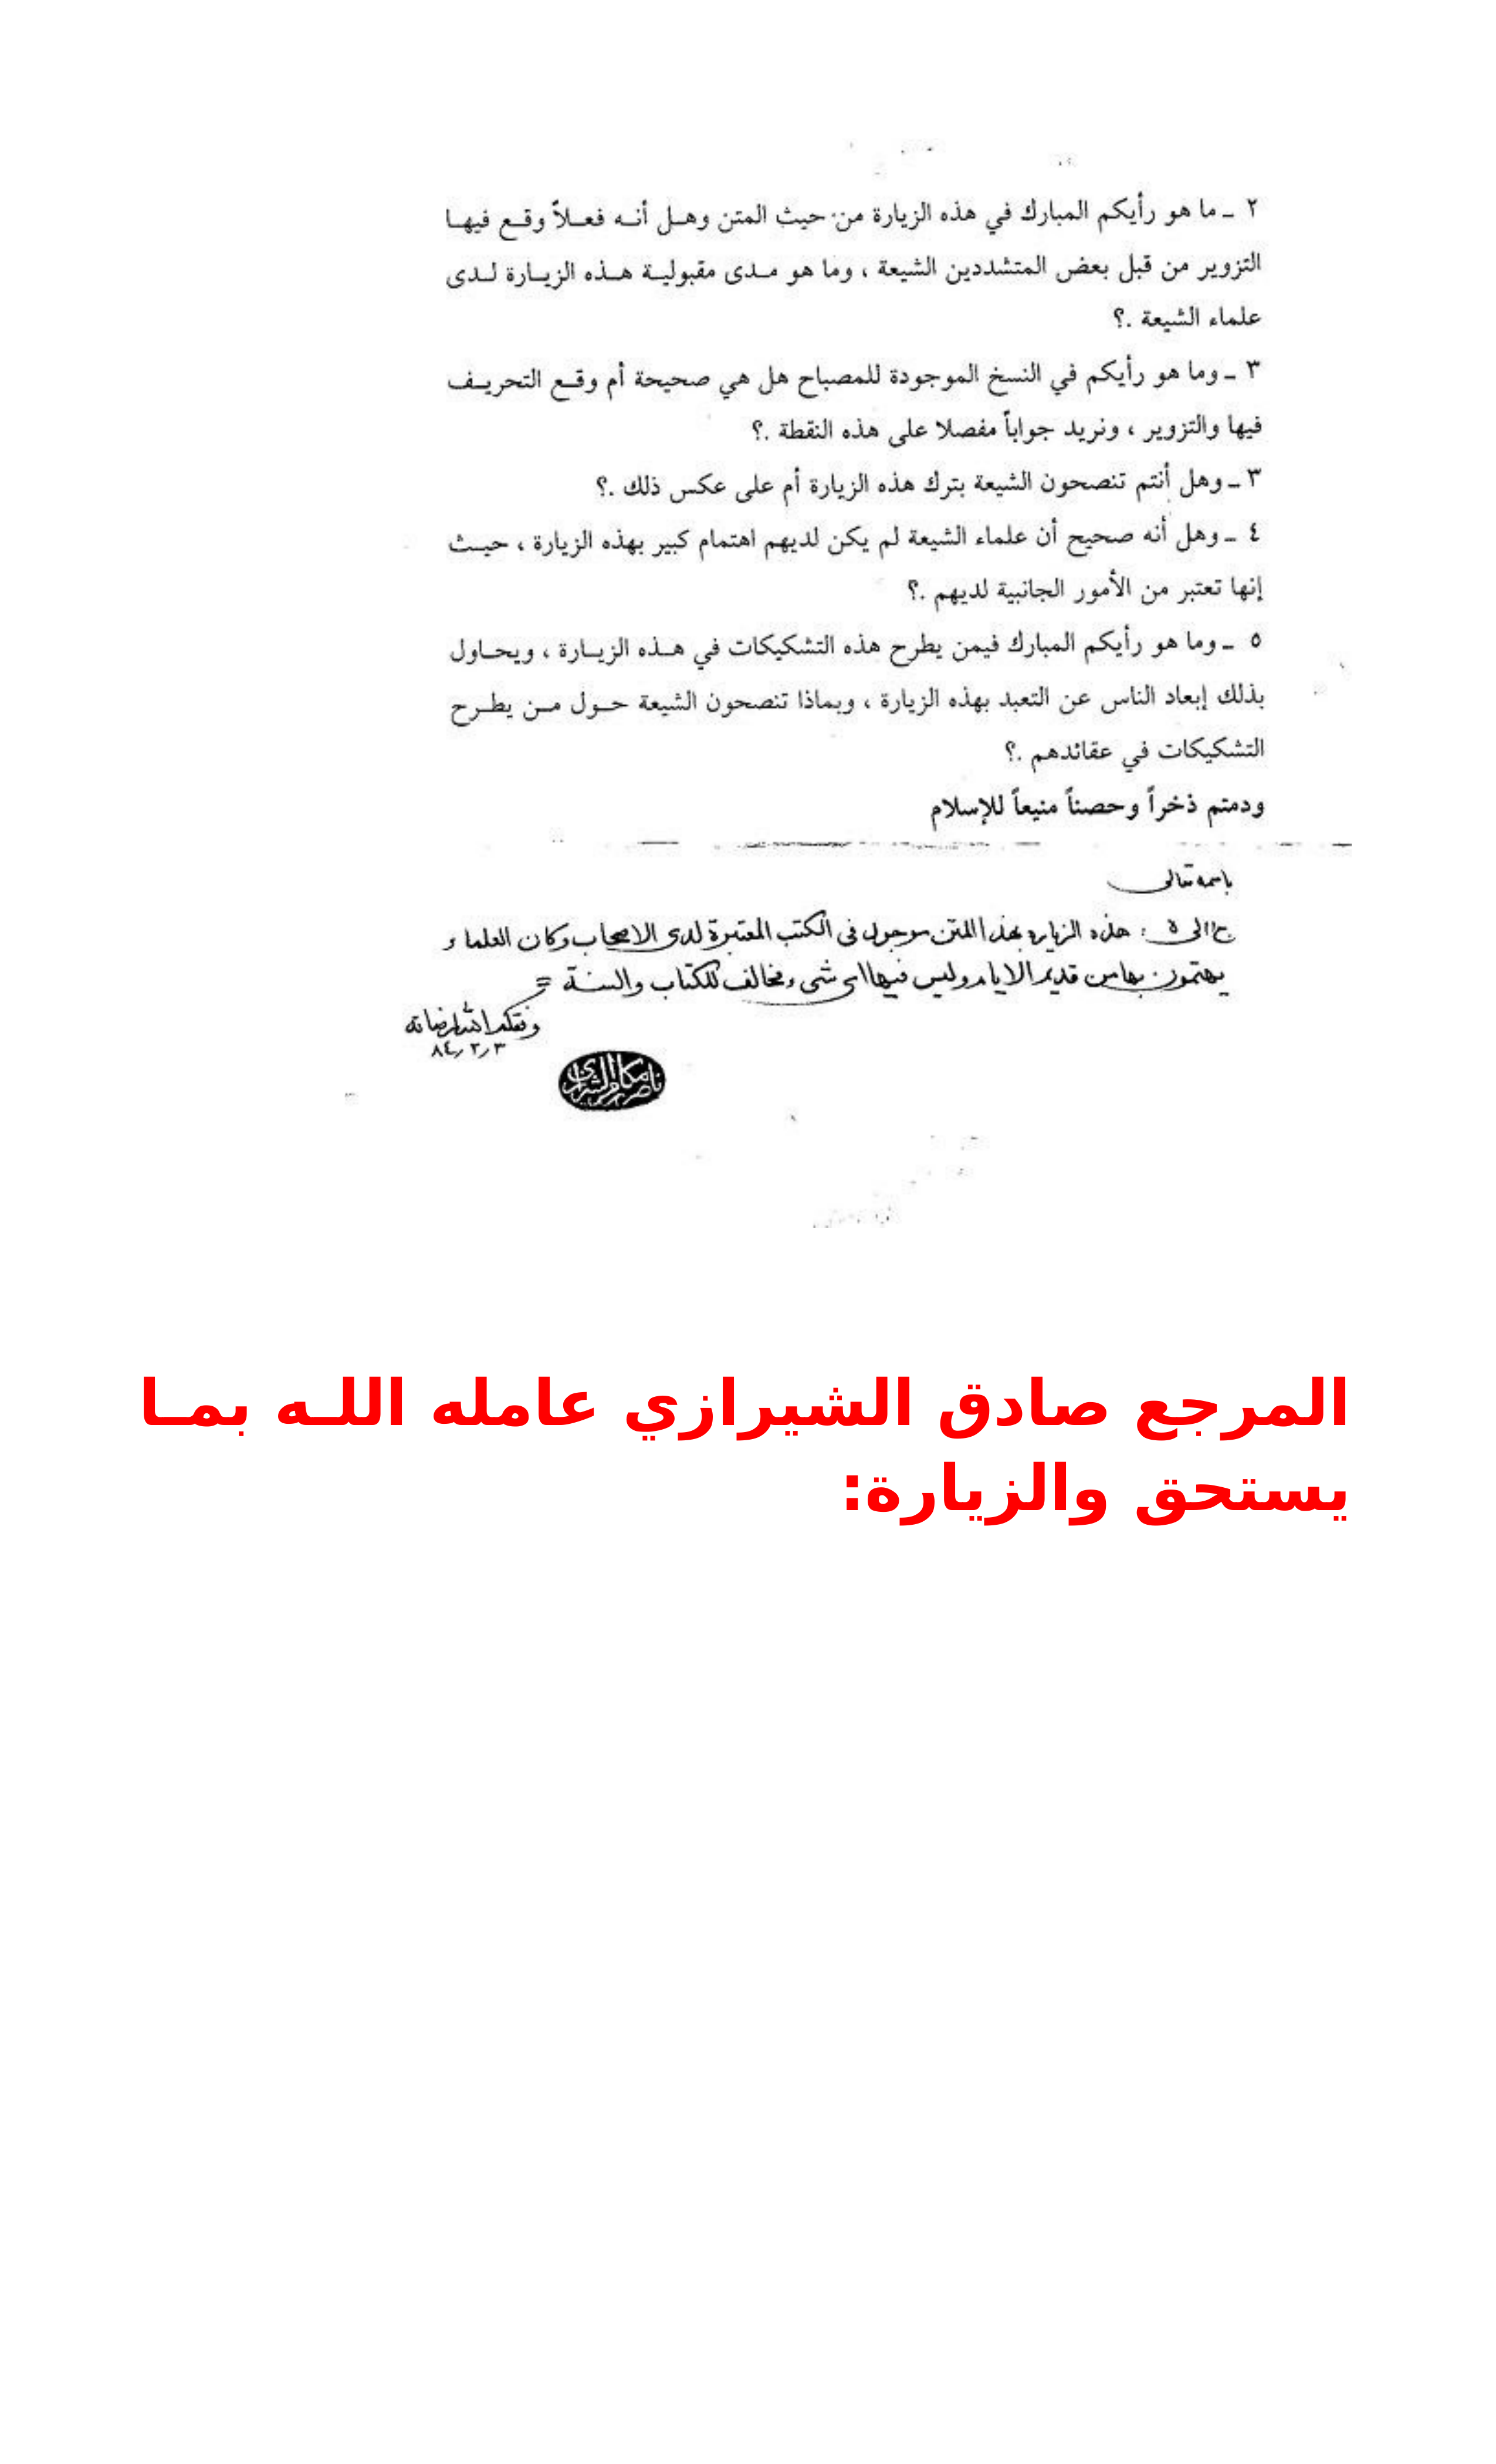 ٢ ـ ما هو رأيكم المبارك في هذه الزيارة من حيث المتن وهـل أنـه فعـلاً وقـع فيهـا
التزوير من قبل بعض المتشددين الشيعة ، وما هو مـدى مقبوليـة هـذه الزيـارة لـدى
علماء الشيعة .؟
٣ ـ وما هو رأيكم في النسخ الموجودة للمصباح هل هي صحيحة أم وقـع التحريـف
فيها والتزوير ، ونريد جواباً مفصلا على هذه النقطة .؟
٣ ـ وهل أنتم تنصحون الشيعة بترك هذه الزيارة أم على عكس ذلك .؟
٤ ـ وهل أنه صحيح أن علماء الشيعة لم يكن لديهم اهتمام كبير بهذه الزيارة ، حيـث
إنها تعتبر من الأمور الجانبية لديهم .؟
٥ ـ وما هو رأيكم المبارك فيمن يطرح هذه التشكيكات في هـذه الزيـارة ، ويحـاول
بذلك إبعاد الناس عن التعبد بهذه الزيارة ، وبماذا تنصحون الشيعة حـول مـن يطـرح
التشكيكات في عقائدهم .؟
ودمتم ذخراً وحصناً منيعاً للإسلام
باسمه تعالى
ج١ الى ٥ : هذه الزيارة بهذا المتن موجود في الكتب المعتبرة لدى الاصحاب وكان العلماء
يهتمون بها من قديم الايام وليس فيها اى شىء مخالف للكتاب والسنة =
وفقكم الله لمرضاته
٨٤/٢/٣
ناصر مكارم الشيرازي
المرجع صادق الشيرازي عامله اللـه بمـا
يستحق والزيارة: